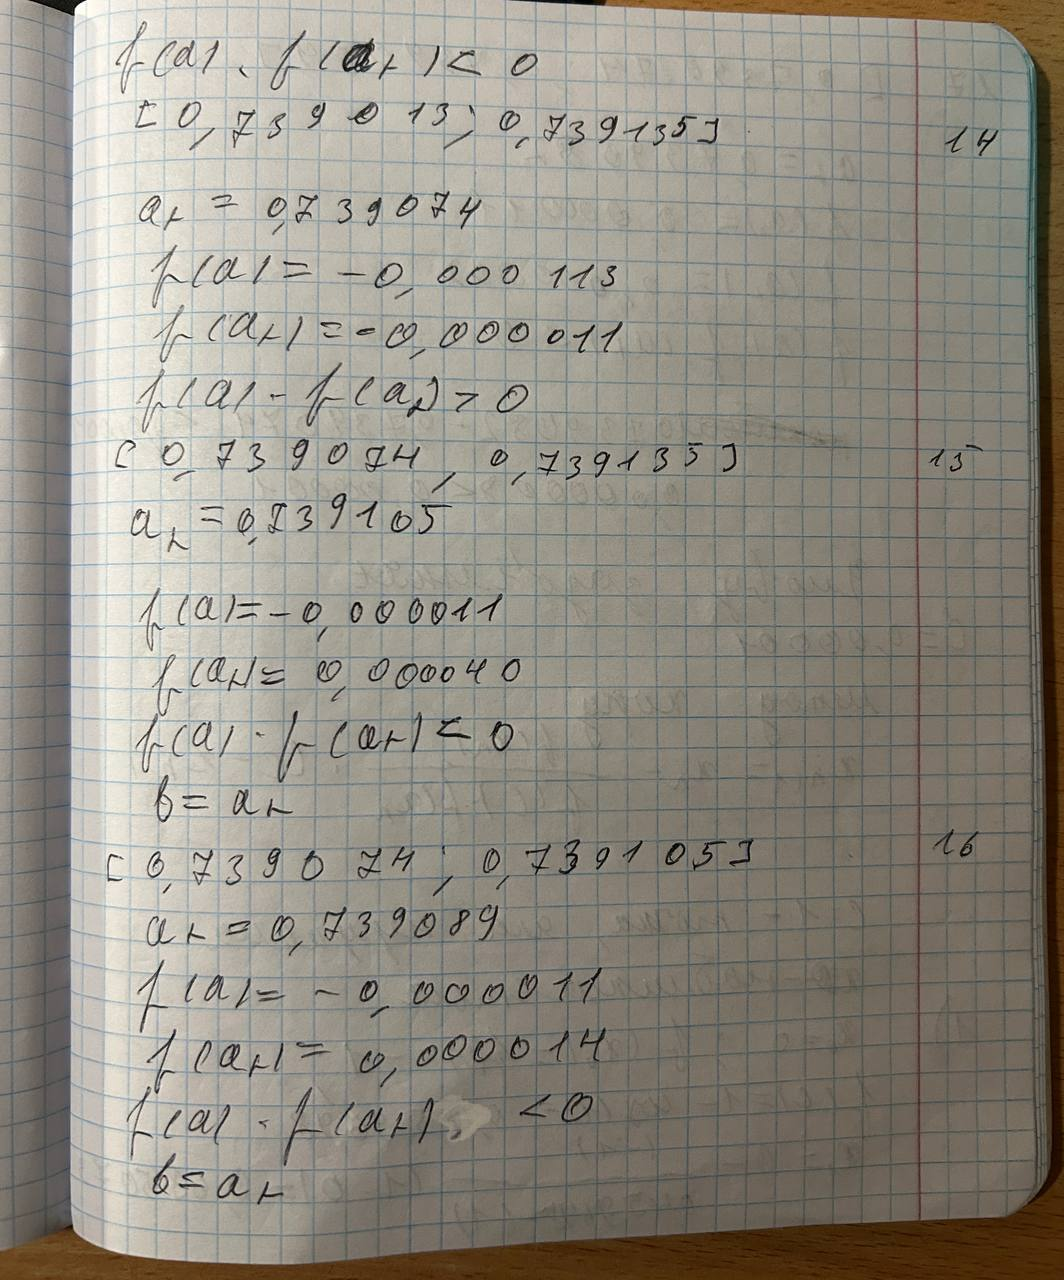 f(a) · f(aₖ) < 0
[0,739013; 0,739135] 14
aₖ = 0,739074
f(a) = -0,000113
f(aₖ) = -0,000011
f(a) - f(aₖ) > 0
[0,739074, 0,739135] 15
aₖ = 0,739105
f(a) = -0,000011
f(aₖ) = 0,000040
f(a) · f(aₖ) < 0
b = aₖ
[0,739074; 0,739105] 16
aₖ = 0,739089
f(a) = -0,000011
f(aₖ) = 0,000014
f(a) · f(aₖ) < 0
b = aₖ